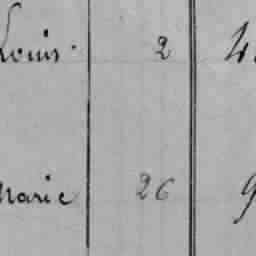 Louis 2
Marie 26 9